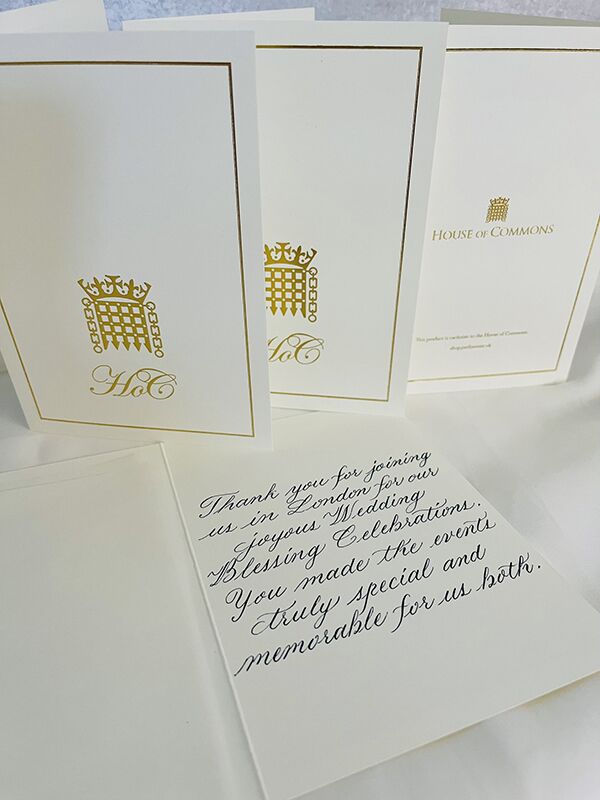 HoC
HoC
HOUSE OF COMMONS
This product is exclusive to the House of Commons
shop.parliament.uk
Thank you for joining
us in London for our
joyous Wedding
Blessing Celebrations.
You made the events
truly special and
memorable for us both.